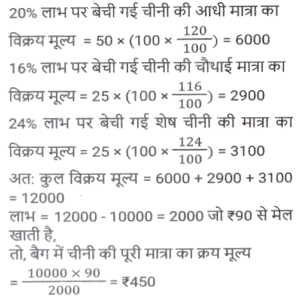 20% लाभ पर बेची गई चीनी की आधी मात्रा का
विक्रय मूल्य = 50 × (100 × 120/100) = 6000
16% लाभ पर बेची गई चीनी की चौथाई मात्रा का
विक्रय मूल्य = 25 × (100 × 116/100) = 2900
24% लाभ पर बेची गई शेष चीनी की मात्रा का
विक्रय मूल्य = 25 × (100 × 124/100) = 3100
अत: कुल विक्रय मूल्य = 6000 + 2900 + 3100
= 12000
लाभ = 12000 - 10000 = 2000 जो ₹90 से मेल
खाती है,
तो, बैग में चीनी की पूरी मात्रा का क्रय मूल्य
= 10000 × 90/2000 = ₹450